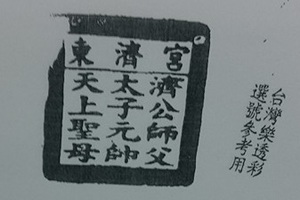 宮濟東
濟公師父
太子元帥
天上聖母
台灣樂透彩
選號參考用